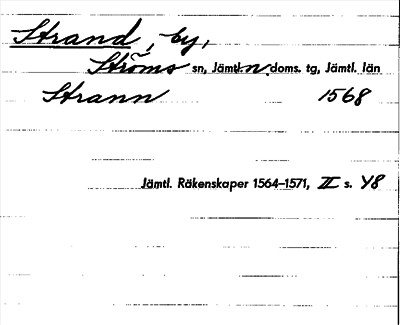 Strand, by,
Ströms sn, Jämtl. n. doms. tg, Jämtl. län
Strann 1568
Jämtl. Räkenskaper 1564–1571, II s. 48